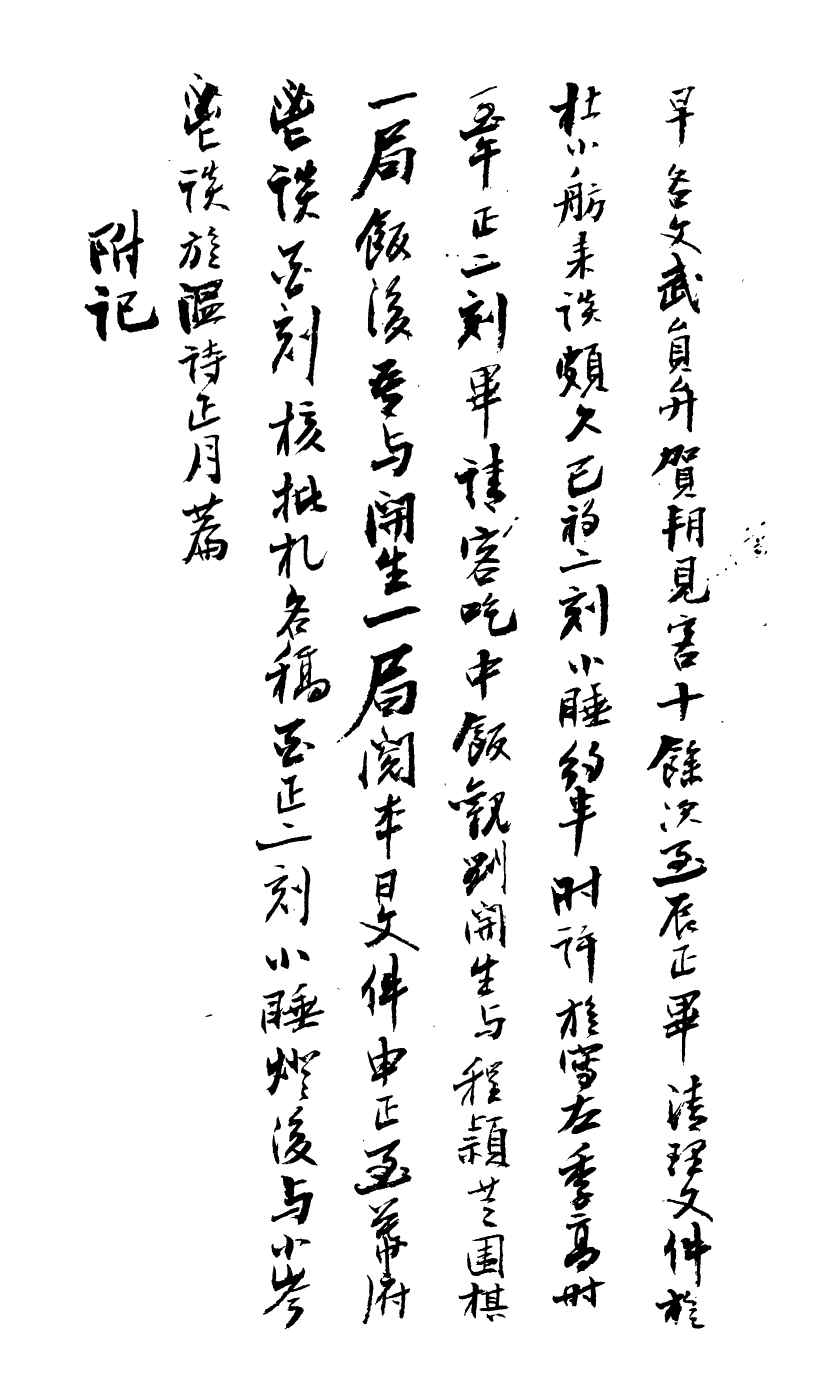 早各文武員弁賀朔見客十餘次至辰正畢清理文件旋
杜小舫来談頗久巳初二刻小睡約半时許旋寫左季高
至午正二刻畢請客吃中飯觀劉開生与程穎芝圍棋
一局飯後吾与開生一局閱本日文件申正至幕府
鬯談酉刻核批札各稿酉正二刻小睡燈後与小岑
鬯談旋溫詩正月篇
附記